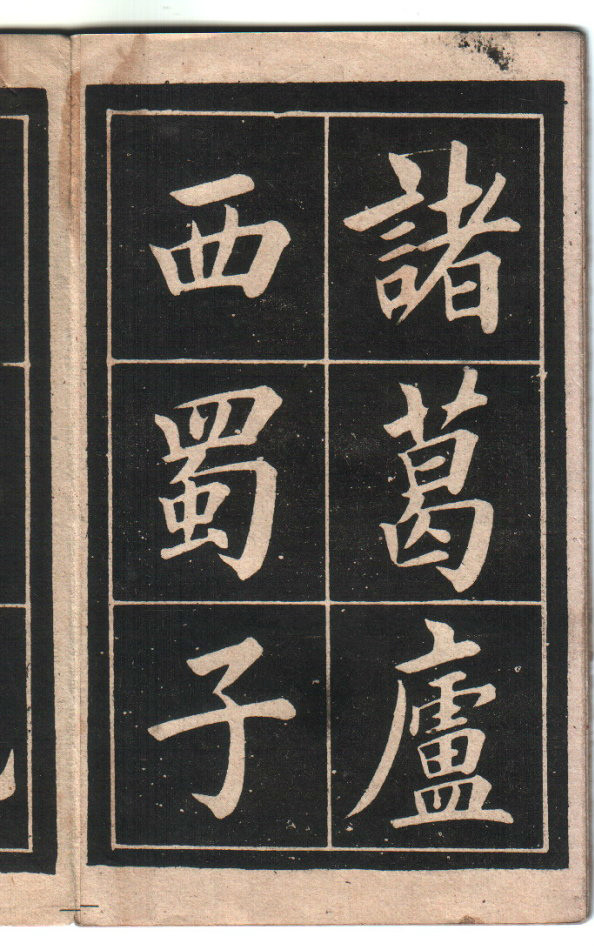 諸葛廬
西蜀子